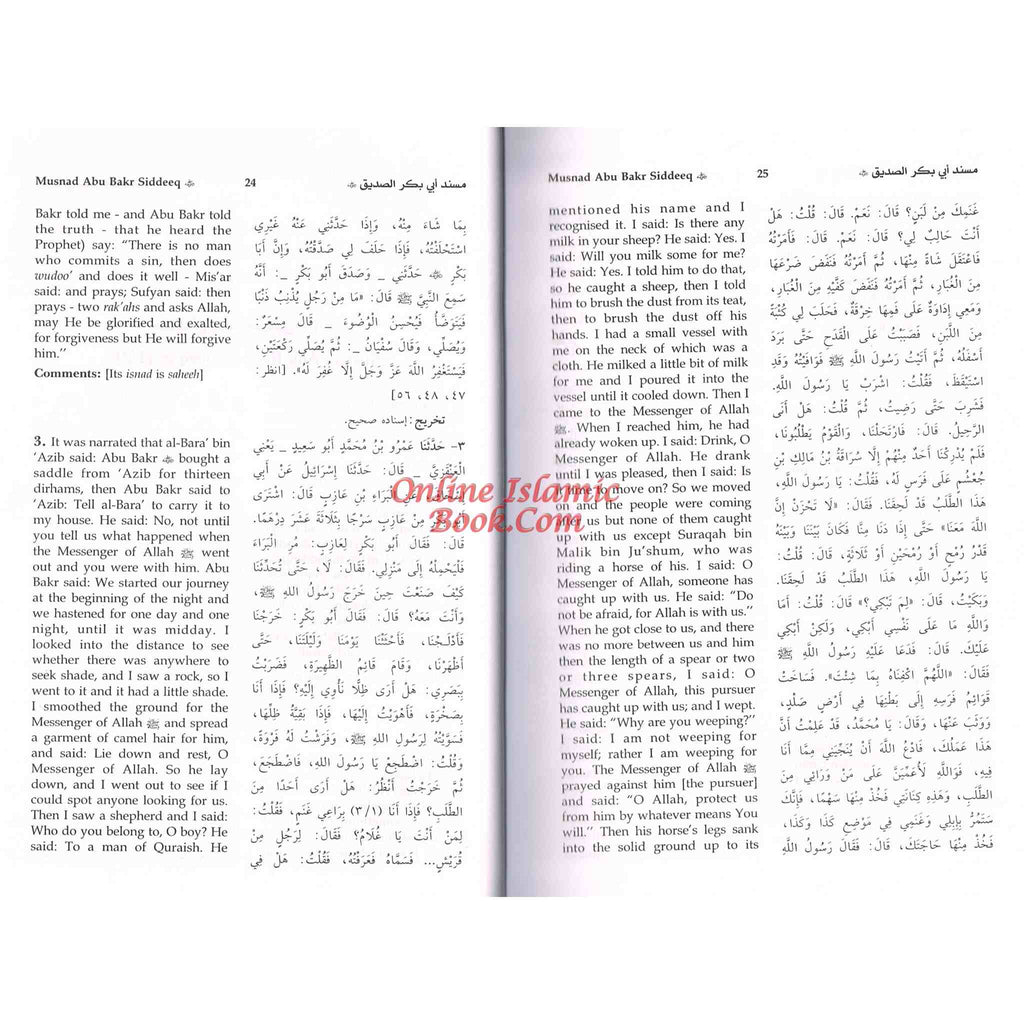 Musnad Abu Bakr Siddeeq
24
مسند أبي بكر الصديق
Bakr told me - and Abu Bakr told
the truth - that he heard the
Prophet) say: “There is no man
who commits a sin, then does
wudoo’ and does it well - Mis’ar
said: and prays; Sufyan said: then
prays - two rak’ahs and asks Allah,
may He be glorified and exalted,
for forgiveness but He will forgive
him.”
Comments: [Its isnad is saheeh]
3. It was narrated that al-Bara’ bin
‘Azib said: Abu Bakr bought a
saddle from ‘Azib for thirteen
dirhams, then Abu Bakr said to
‘Azib: Tell al-Bara’ to carry it to
my house. He said: No, not until
you tell us what happened when
the Messenger of Allah ﷺ went
out and you were with him. Abu
Bakr said: We started our journey
at the beginning of the night and
we hastened for one day and one
night, until it was midday. I
looked into the distance to see
whether there was anywhere to
seek shade, and I saw a rock, so I
went to it and it had a little shade.
I smoothed the ground for the
Messenger of Allah ﷺ and spread
a garment of camel hair for him,
and said: Lie down and rest, O
Messenger of Allah. So he lay
down, and I went out to see if I
could spot anyone looking for us.
Then I saw a shepherd and I said:
Who do you belong to, O boy? He
said: To a man of Quraish. He
بِمَا شَاءَ مِنْهُ، وَإِذَا حَدَّثَنِي عَنْهُ غَيْرِي
اسْتَحْلَفْتُهُ، فَإِذَا حَلَفَ لِي صَدَّقْتُهُ، وَإِنَّ أَبَا
بَكْرٍ حَدَّثَنِي _ وَصَدَقَ أَبُو بَكْرٍ _ أَنَّهُ
سَمِعَ النَّبِيَّ ﷺ قَالَ: «مَا مِنْ رَجُلٍ يُذْنِبُ ذَنْبًا
فَيَتَوَضَّأُ فَيُحْسِنُ الْوُضُوءَ _ قَالَ مِسْعَرٌ:
وَيُصَلِّي، وَقَالَ سُفْيَانُ _: ثُمَّ يُصَلِّي رَكْعَتَيْنِ،
فَيَسْتَغْفِرُ اللَّهَ عَزَّ وَجَلَّ إِلَّا غُفِرَ لَهُ». [انظر:
٤٧، ٤٨، ٥٦]
تخريج: إسناده صحيح.
٣- حَدَّثَنَا عَمْرُو بْنُ مُحَمَّدٍ أَبُو سَعِيدٍ _ يَعْنِي
الْعَنْقَزِيَّ _ قَالَ: حَدَّثَنَا إِسْرَائِيلُ عَنْ أَبِي
إِسْحَاقَ عَنِ الْبَرَاءِ بْنِ عَازِبٍ قَالَ: اشْتَرَى
أَبُو بَكْرٍ مِنْ عَازِبٍ سَرْجًا بِثَلَاثَةَ عَشَرَ دِرْهَمًا.
قَالَ: فَقَالَ أَبُو بَكْرٍ لِعَازِبٍ: مُرِ الْبَرَاءَ
فَلْيَحْمِلْهُ إِلَى مَنْزِلِي. فَقَالَ: لَا، حَتَّى تُحَدِّثَنَا
كَيْفَ صَنَعْتَ حِينَ خَرَجَ رَسُولُ اللهِ ﷺ،
وَأَنْتَ مَعَهُ؟ قَالَ: فَقَالَ أَبُو بَكْرٍ: خَرَجْنَا
فَأَدْلَجْنَا، فَأَحْثَثْنَا يَوْمَنَا وَلَيْلَتَنَا، حَتَّى
أَظْهَرْنَا، وَقَامَ قَائِمُ الظَّهِيرَةِ، فَضَرَبْتُ
بِبَصَرِي: هَلْ أَرَى ظِلًّا نَأْوِي إِلَيْهِ؟ فَإِذَا أَنَا
بِصَخْرَةٍ، فَأَهْوَيْتُ إِلَيْهَا، فَإِذَا بَقِيَّةُ ظِلِّهَا،
فَسَوَّيْتُهُ لِرَسُولِ اللهِ ﷺ، وَفَرَشْتُ لَهُ فَرْوَةً،
وَقُلْتُ: اضْطَجِعْ يَا رَسُولَ اللهِ، فَاضْطَجَعَ،
ثُمَّ خَرَجْتُ أَنْظُرُ: هَلْ أَرَى أَحَدًا مِنَ
الطَّلَبِ؟ فَإِذَا أَنَا (٣/١) بِرَاعِي غَنَمٍ، فَقُلْتُ:
لِمَنْ أَنْتَ يَا غُلَامُ؟ فَقَالَ: لِرَجُلٍ مِنْ
قُرَيْشٍ... فَسَمَّاهُ فَعَرَفْتُهُ، فَقُلْتُ: هَلْ فِي
Musnad Abu Bakr Siddeeq
25
مسند أبي بكر الصديق
mentioned his name and I
recognised it. I said: Is there any
milk in your sheep? He said: Yes. I
said: Will you milk some for me?
He said: Yes. I told him to do that,
so he caught a sheep, then I told
him to brush the dust from its teat,
then to brush the dust off his
hands. I had a small vessel with
me on the neck of which was a
cloth. He milked a little bit of milk
for me and I poured it into the
vessel until it cooled down. Then I
came to the Messenger of Allah
ﷺ. When I reached him, he had
already woken up. I said: Drink, O
Messenger of Allah. He drank
until I was pleased, then I said: Is
it time to move on? So we moved
on and the people were coming
after us but none of them caught
up with us except Suraqah bin
Malik bin Ju’shum, who was
riding a horse of his. I said: O
Messenger of Allah, someone has
caught up with us. He said: “Do
not be afraid, for Allah is with us.”
When he got close to us, and there
was no more between us and him
then the length of a spear or two
or three spears, I said: O
Messenger of Allah, this pursuer
has caught up with us; and I wept.
He said: “Why are you weeping?”
I said: I am not weeping for
myself; rather I am weeping for
you. The Messenger of Allah ﷺ
prayed against him [the pursuer]
and said: “O Allah, protect us
from him by whatever means You
will.” Then his horse’s legs sank
into the solid ground up to its
غَنَمِكَ مِنْ لَبَنٍ؟ قَالَ: نَعَمْ. قَالَ: قُلْتُ: هَلْ
أَنْتَ حَالِبٌ لِي؟ قَالَ: نَعَمْ. قَالَ: فَأَمَرْتُهُ
فَاعْتَقَلَ شَاةً مِنْهَا، ثُمَّ أَمَرْتُهُ فَنَفَضَ ضَرْعَهَا
مِنَ الْغُبَارِ، ثُمَّ أَمَرْتُهُ فَنَفَضَ كَفَّيْهِ مِنَ الْغُبَارِ،
وَمَعِي إِدَاوَةٌ عَلَى فَمِهَا خِرْقَةٌ، فَحَلَبَ لِي كُثْبَةً
مِنَ اللَّبَنِ، فَصَبَبْتُ عَلَى الْقَدَحِ حَتَّى بَرَدَ
أَسْفَلُهُ، ثُمَّ أَتَيْتُ رَسُولَ اللَّهِ ﷺ فَوَافَيْتُهُ وَقَدِ
اسْتَيْقَظَ، فَقُلْتُ: اشْرَبْ يَا رَسُولَ اللَّهِ.
فَشَرِبَ حَتَّى رَضِيتُ، ثُمَّ قُلْتُ: هَلْ أَنَى
الرَّحِيلُ. قَالَ: فَارْتَحَلْنَا، وَالْقَوْمُ يَطْلُبُونَا،
فَلَمْ يُدْرِكْنَا أَحَدٌ مِنْهُمْ إِلَّا سُرَاقَةُ بْنُ مَالِكِ بْنِ
جُعْشُمٍ عَلَى فَرَسٍ لَهُ، فَقُلْتُ: يَا رَسُولَ اللَّهِ،
هَذَا الطَّلَبُ قَدْ لَحِقَنَا. فَقَالَ: «لَا تَحْزَنْ إِنَّ
اللَّهَ مَعَنَا» حَتَّى إِذَا دَنَا مِنَّا فَكَانَ بَيْنَنَا وَبَيْنَهُ
قَدْرُ رُمْحٍ أَوْ رُمْحَيْنِ أَوْ ثَلَاثَةٍ، قَالَ: قُلْتُ:
يَا رَسُولَ اللَّهِ، هَذَا الطَّلَبُ قَدْ لَحِقَنَا.
وَبَكَيْتُ، قَالَ: «لِمَ تَبْكِي؟» قَالَ: قُلْتُ: أَمَا
وَاللَّهِ مَا عَلَى نَفْسِي أَبْكِي، وَلَكِنْ أَبْكِي
عَلَيْكَ. قَالَ: فَدَعَا عَلَيْهِ رَسُولُ اللَّهِ ﷺ
فَقَالَ: «اللَّهُمَّ اكْفِنَاهُ بِمَا شِئْتَ». فَسَاخَتْ
قَوَائِمُ فَرَسِهِ إِلَى بَطْنِهَا فِي أَرْضٍ صَلْدٍ،
وَوَثَبَ عَنْهَا، وَقَالَ: يَا مُحَمَّدُ، قَدْ عَلِمْتُ أَنَّ
هَذَا عَمَلُكَ، فَادْعُ اللَّهَ أَنْ يُنَجِّيَنِي مِمَّا أَنَا
فِيهِ، فَوَاللَّهِ لَأُعَمِّيَنَّ عَلَى مَنْ وَرَائِي مِنَ
الطَّلَبِ، وَهَذِهِ كِنَانَتِي فَخُذْ مِنْهَا سَهْمًا، فَإِنَّكَ
سَتَمُرُّ بِإِبِلِي وَغَنَمِي فِي مَوْضِعِ كَذَا وَكَذَا،
فَخُذْ مِنْهَا حَاجَتَكَ، قَالَ: فَقَالَ رَسُولُ اللَّهِ
Online Islamic
Book.Com